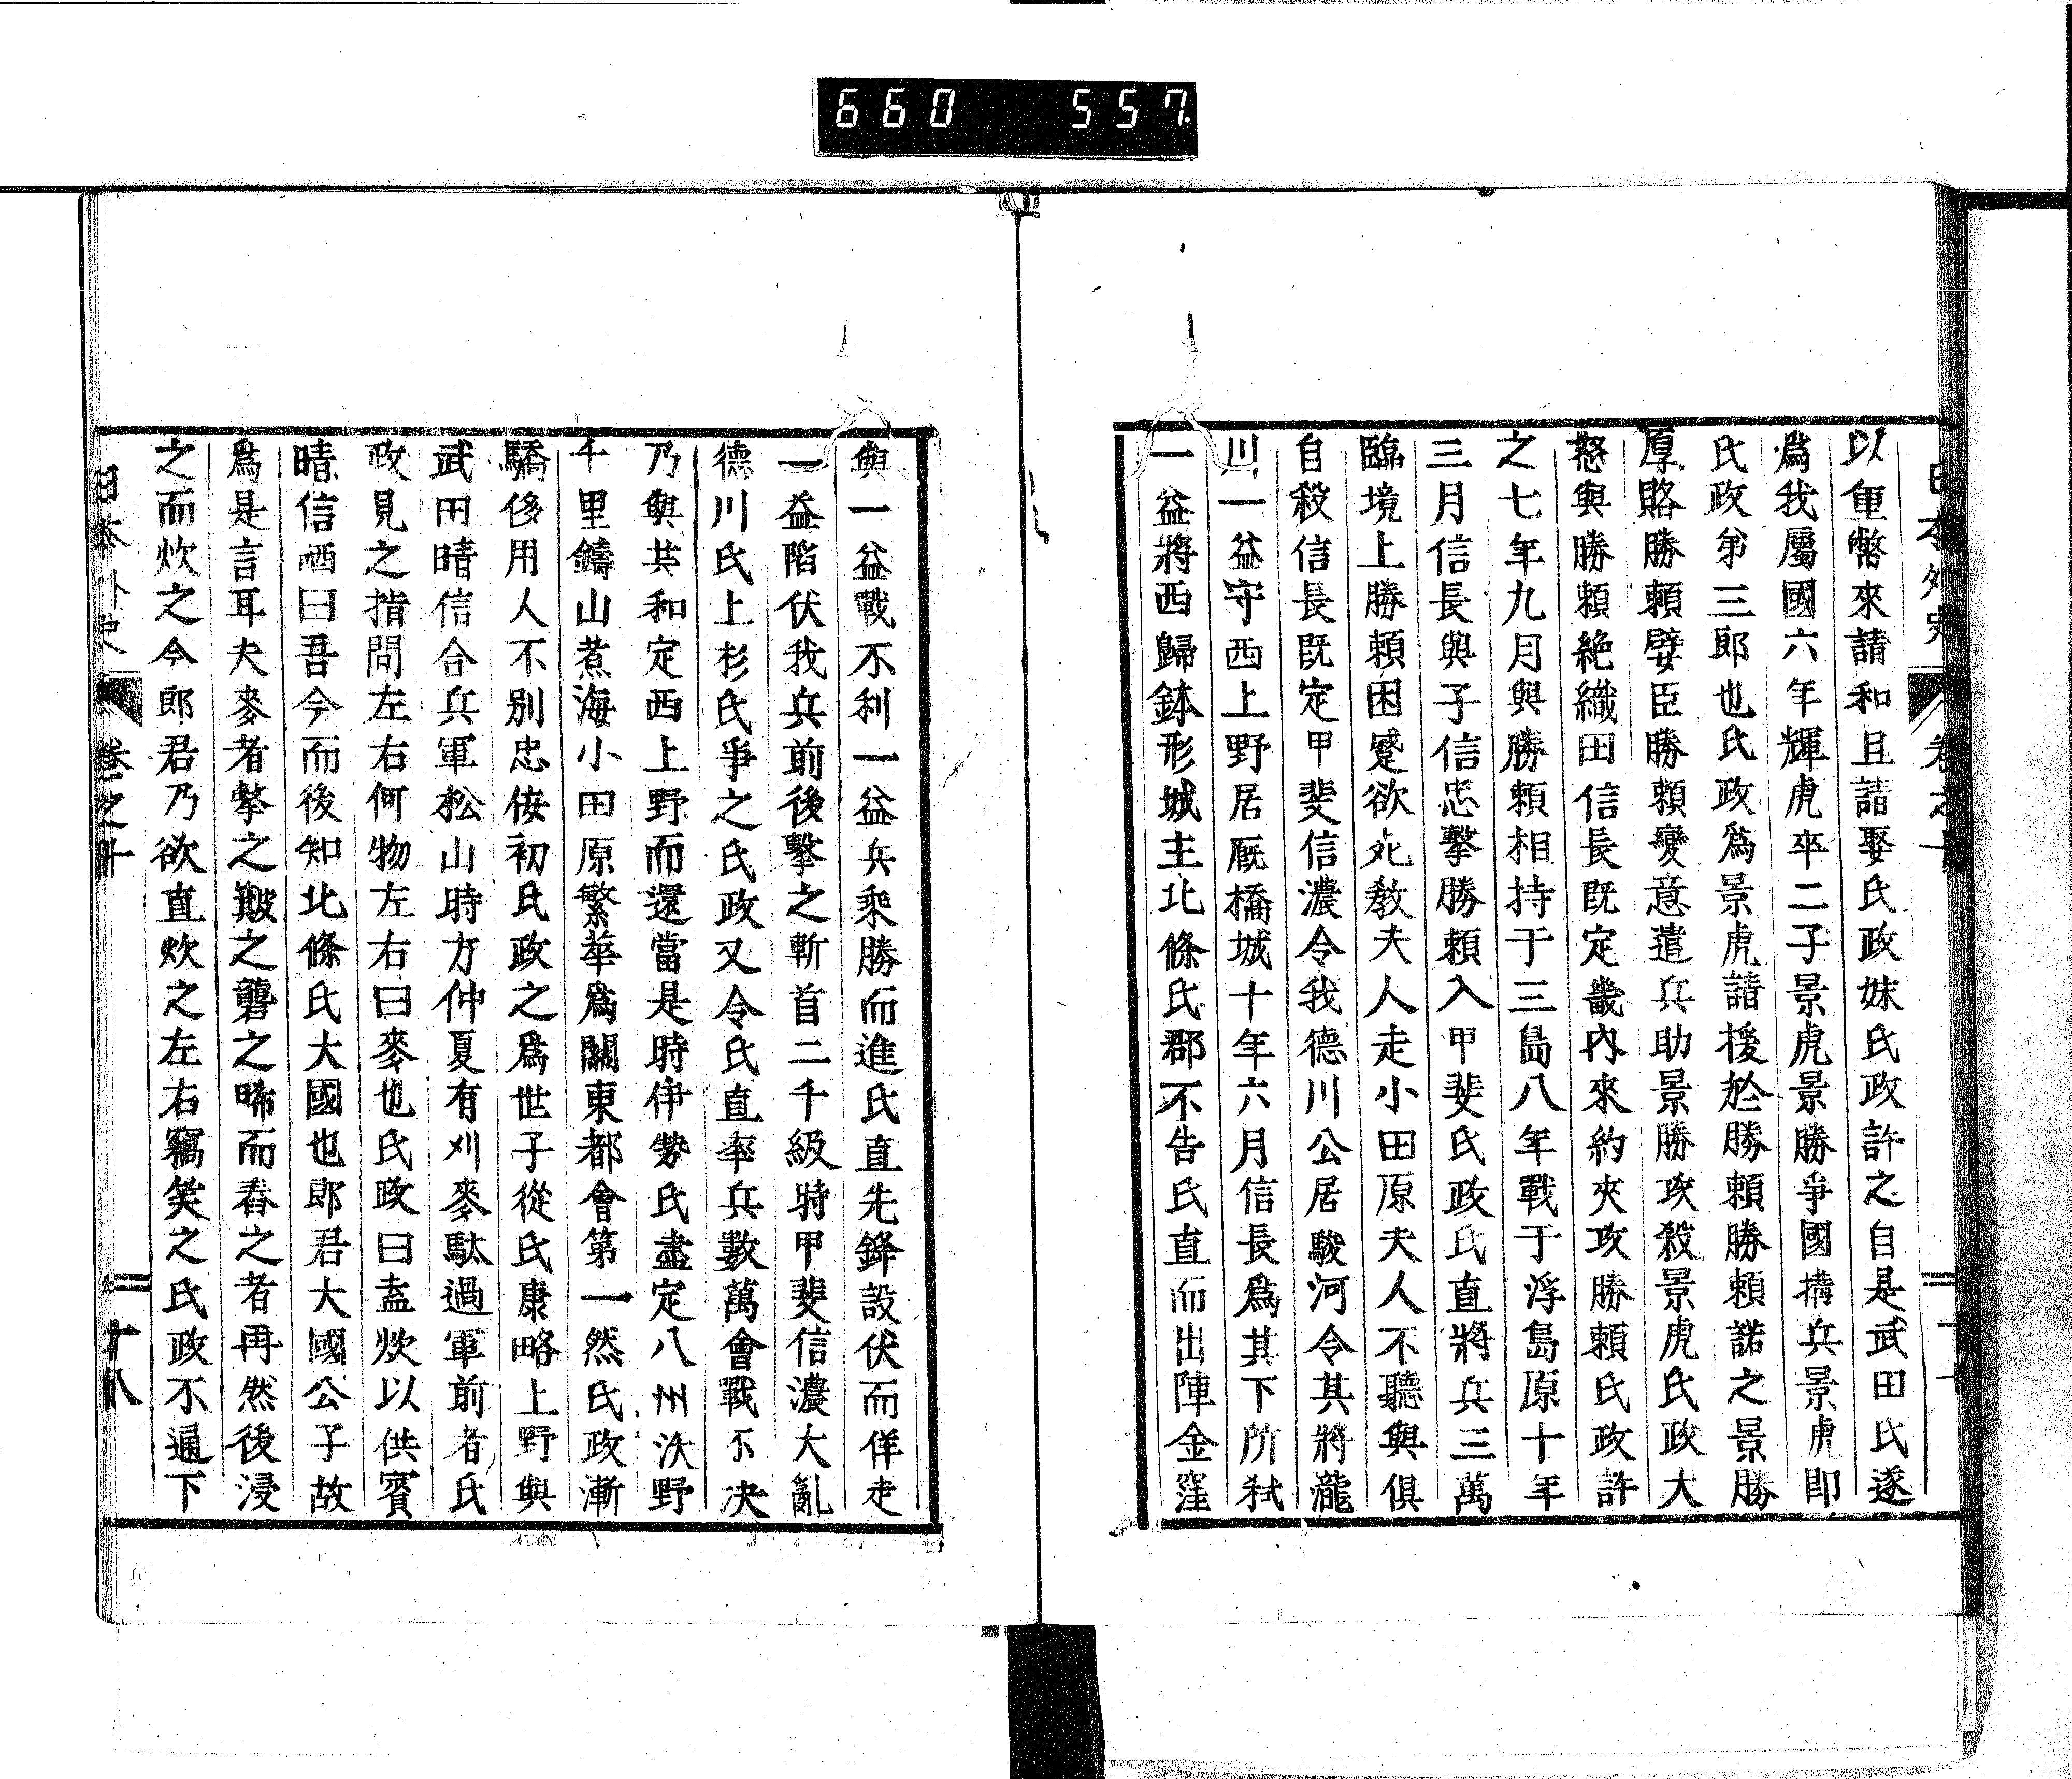 660 557.
以重幣來請和且請娶氏政妹氏政許之自是武田氏遂
為我屬國六年輝虎卒二子景虎景勝爭國搆兵景虎即
氏政弟三郎也氏政為景虎請援於勝賴勝賴諾之景勝
厚賂勝賴嬖臣勝賴變意遣兵助景勝攻殺景虎氏政大
怒與勝賴絕織田信長既定畿內來約夾攻勝賴氏政許
之七年九月與勝賴相持于三島八年戰于浮島原十年
三月信長與子信忠擊勝賴入甲斐氏政氏直將兵三萬
臨境上勝賴困蹙欲死敎夫人走小田原夫人不聽與俱
自殺信長既定甲斐信濃令我德川公居駿河令其將瀧
川一益守西上野居厩橋城十年六月信長為其下所弒
一益將西歸鉢形城主北條氏郡不告氏直而出陣金窪
日本外史 卷之十
與一益戰不利一益兵乘勝而進氏直先鋒設伏而佯走
一益陷伏我兵前後擊之斬首二千級時甲斐信濃大亂
德川氏上杉氏爭之氏政又令氏直率兵數萬會戰不决
乃與共和定西上野而還當是時伊勢氏盡定八州沃野
千里鑄山煮海小田原繁華為關東都會第一然氏政漸
驕侈用人不別忠侫初氏政之為世子從氏康略上野與
武田晴信合兵軍松山時方仲夏有刈麥駄過軍前者氏
政見之指問左右何物左右曰麥也氏政曰盍炊以供賓
晴信哂曰吾今而後知北條氏大國也郎君大國公子故
為是言耳夫麥者擊之簸之礱之晞而舂之者再然後浸
之而炊之今郎君乃欲直炊之左右竊笑之氏政不通下
日本外史 卷之十 十八